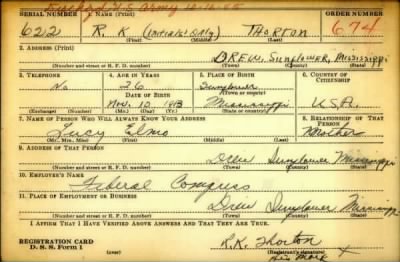 U.S. Army 10-16-45
SERIAL NUMBER 1. NAME (Print) ORDER NUMBER
622 R. K. (Initials Only) Thorton 674
(First) (Middle) (Last)
2. ADDRESS (Print)
DREW, Sunflower, Mississippi
(Number and street or R. F. D. number) (Town) (County) (State)
3. TELEPHONE 4. AGE IN YEARS 5. PLACE OF BIRTH 6. COUNTRY OF CITIZENSHIP
No 26 Sunflower
DATE OF BIRTH (Town or county)
Nov. 10 1913 Mississippi U.S.A.
(Exchange) (Number) (Mo.) (Day) (Yr.) (State or country)
7. NAME OF PERSON WHO WILL ALWAYS KNOW YOUR ADDRESS 8. RELATIONSHIP OF THAT PERSON
Lucy Elmo Mother
(Mr., Mrs., Miss) (First) (Middle) (Last)
9. ADDRESS OF THAT PERSON
Drew Sunflower Mississippi
(Number and street or R. F. D. number) (Town) (County) (State)
10. EMPLOYER'S NAME
Federal Compress
11. PLACE OF EMPLOYMENT OR BUSINESS
Drew Sunflower Mississippi
(Number and street or R. F. D. number) (Town) (County) (State)
I AFFIRM THAT I HAVE VERIFIED ABOVE ANSWERS AND THAT THEY ARE TRUE.
REGISTRATION CARD R.K. Thorton
D. S. S. Form 1 His Mark X